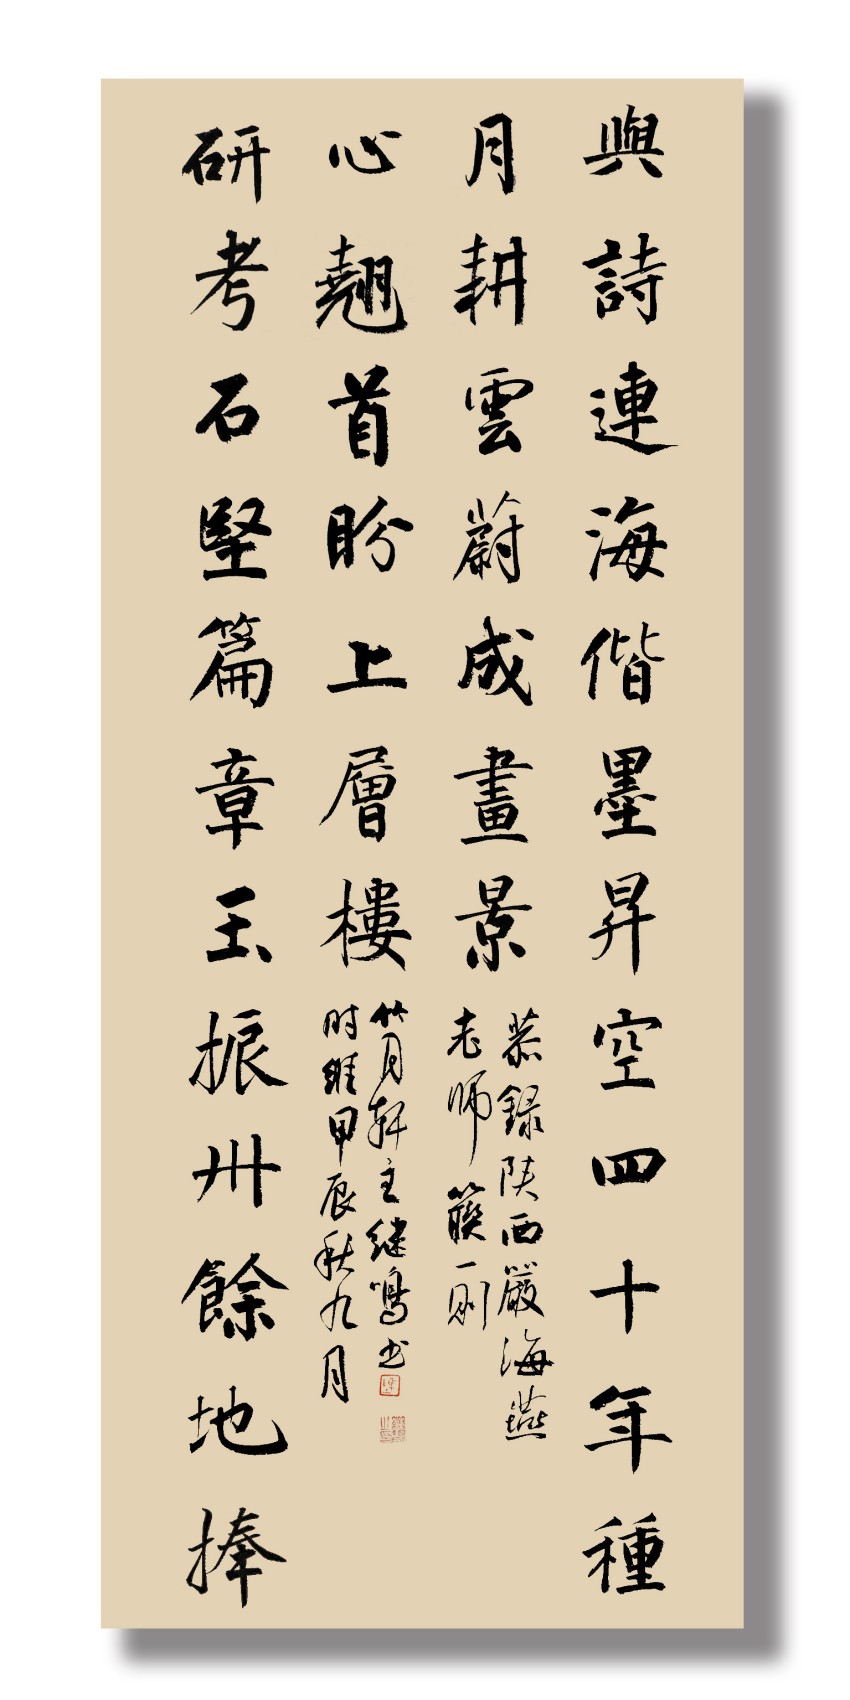 與詩連海偕墨昇空四十年種
月耕雲蔚成畫景
恭録陕西嚴海燕
老师一则
研考石堅篇章玉振卅餘地捧
心翹首盼上層樓
竹月軒主继鸣书
时維甲辰秋九月